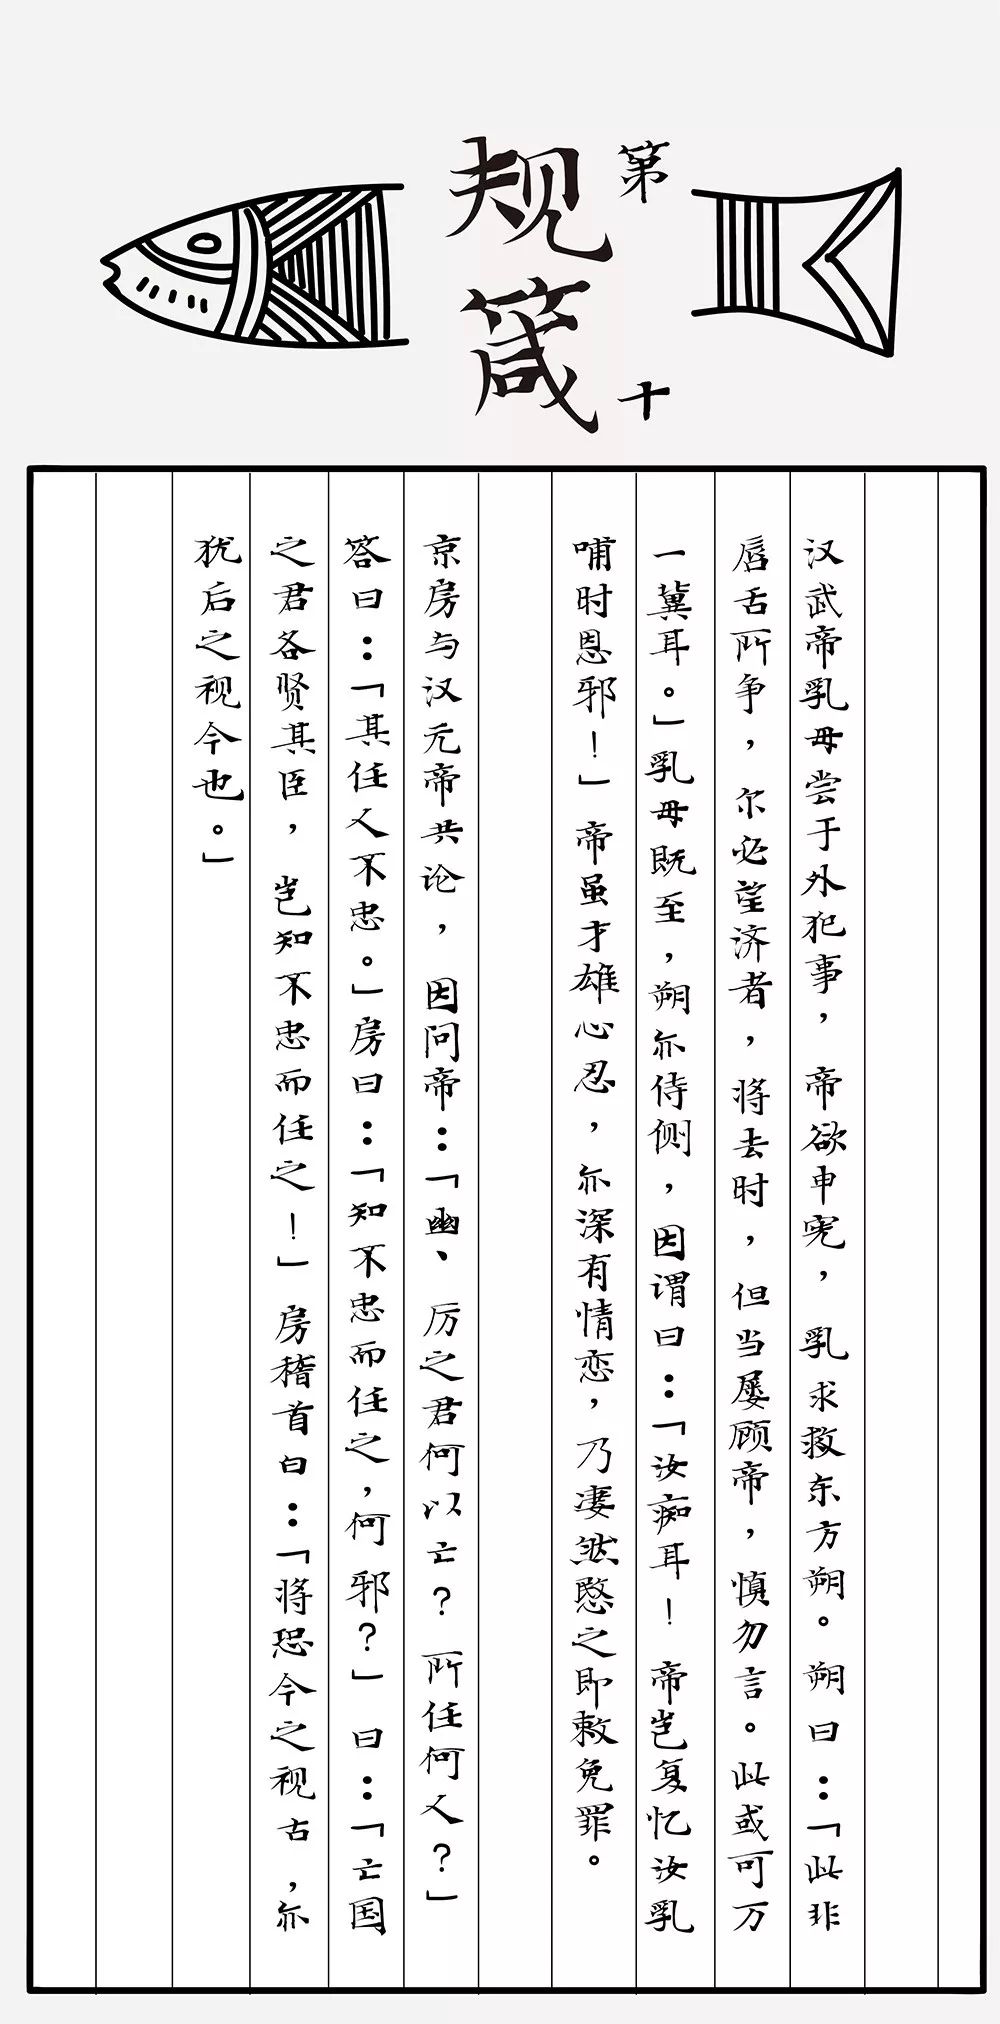 规箴
第十
汉武帝乳母尝于外犯事，帝欲申宪，乳求救东方朔。朔曰：「此非
唇舌所争，尔必望济者，将去时，但当屡顾帝，慎勿言。此或可万
一冀耳。」乳母既至，朔亦侍侧，因谓曰：「汝痴耳！帝岂复忆汝乳
哺时恩邪！」帝虽才雄心忍，亦深有情恋，乃凄然愍之即敕免罪。
京房与汉元帝共论，因问帝：「幽、厉之君何以亡？所任何人？」
答曰：「其任人不忠。」房曰：「知不忠而任之，何邪？」曰：「亡国
之君各贤其臣，岂知不忠而任之！」房稽首曰：「将恐今之视古，亦
犹后之视今也。」